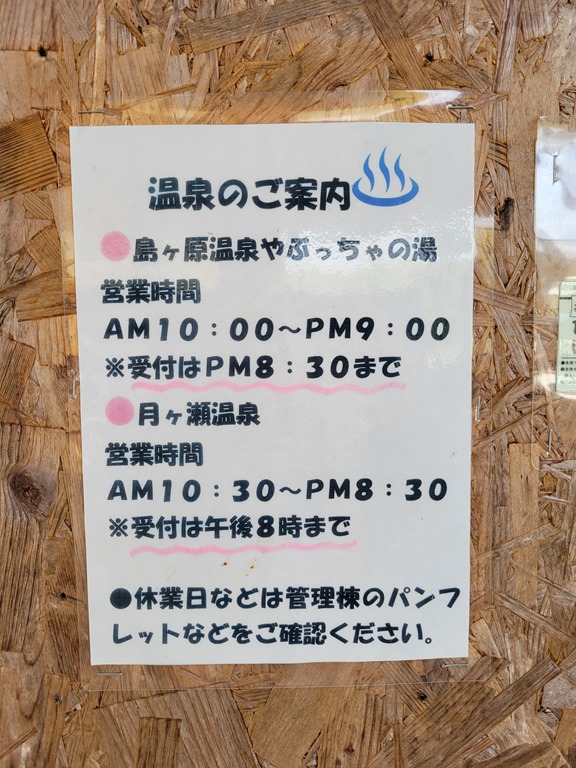 温泉のご案内
●島ヶ原温泉やぶっちゃの湯
営業時間
AM10：00～PM9：00
※受付はPM8：30まで
●月ヶ瀬温泉
営業時間
AM10：30～PM8：30
※受付は午後8時まで
●休業日などは管理棟のパンフ
レットなどをご確認ください。